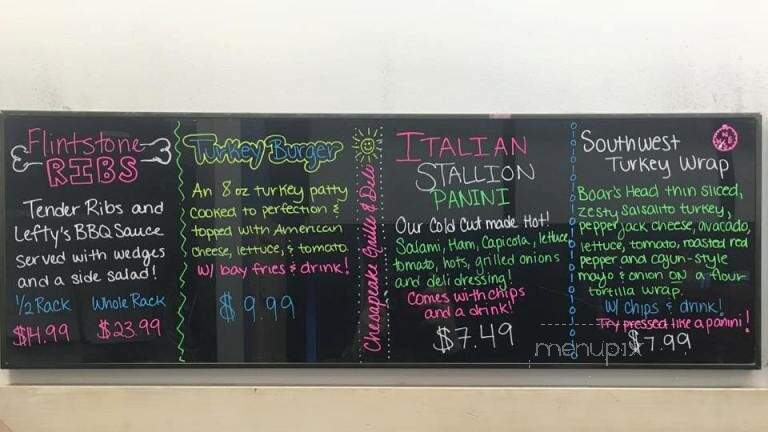 Flintstone
RIBS
Tender Ribs and
Lefty's BBQ Sauce
served with wedges
and a side salad!
1/2 Rack Whole Rack
$14.99 $23.99
Turkey Burger
An 8 oz turkey patty
cooked to perfection &
topped with American
cheese, lettuce, & tomato.
w/ bay fries & drink!
$9.99
Chesapeake Grille & Deli
ITALIAN
STALLION
PANINI
Our Cold Cut made Hot!
Salami, Ham, Capicola, lettuce
tomato, hots, grilled onions
and deli dressing!
Comes with chips
and a drink!
$7.49
Southwest
Turkey Wrap
Boar's Head thin sliced,
zesty Salsalito turkey,
pepper jack cheese, avocado,
lettuce, tomato, roasted red
pepper and cajun-style
mayo & onion on a flour
tortilla wrap.
w/ chips & drink!
Try pressed like a panini!
$7.99
menupix